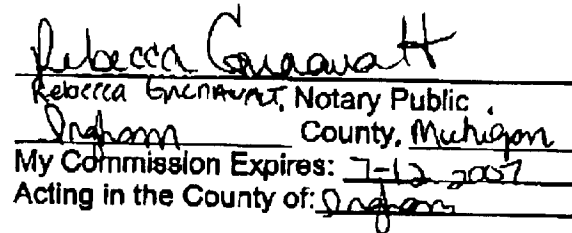 Rebecca
Rebecca Notary Public
Ingham County, Michigan
My Commission Expires: 7-12-2007
Acting in the County of: Ingham